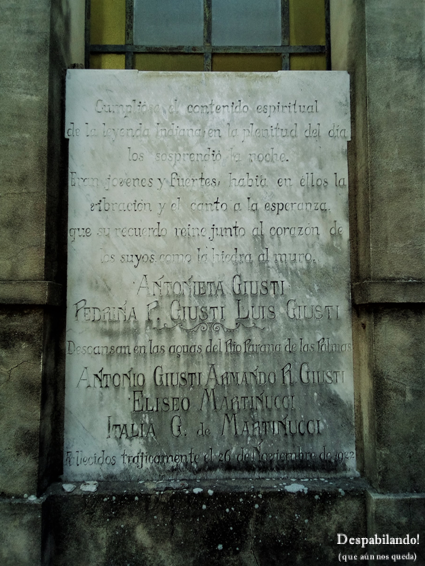 Cumplió el contenido espiritual
de la leyenda indiana, en la plenitud del día
los sosprendió la noche.
Eran jóvenes y fuertes, había en ellos la
vibración y el canto a la esperanza,
que su recuerdo reine junto al corazón de
los suyos como la hiedra al muro.
ANTONIETA GIUSTI
PEDRINA P. GIUSTI LUIS GIUSTI
Descansan en las aguas del Río Paraná de las Palmas
ANTONIO GIUSTI ARMANDO R. GIUSTI
ELISEO MARTINUCCI
ITALIA G. de MARTINUCCI
Fallecidos trágicamente el 26 de Noviembre de
Despabilando!
(que aún nos queda)